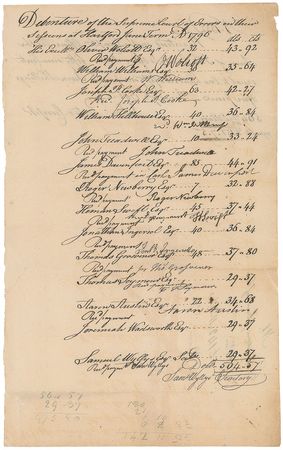 Debenture of the Supreme Court of Errors in their
Sessions at Hartford June Term AD 1796 dls cts
His Excelly Oliver Wolcott Esqr 32 43-92
Recd payment O Wolcott
William Williams Esqr 35-64
Recd payment W Williams
Joseph P. Cooke Esqr 63 42-27
Recd Joseph P Cooke
William Hillhouse Esqr 40 36-84
John Treadwell Esqr 10 33-24
Recd payment John Treadwell
James Davenport Esqr 85 44-91
Recd payment in Cash James Davenport
Roger Newberry Esqr 7 32-88
Recd payment Roger Newberry
Heman Swift Esqr 45 37-44
Recd payment H Swift
Jonathan Ingersol Esqr 40 36-84
Recd payment Jonth Ingersoll
Thomas Grosvenor Esqr 48 37-80
Recd payment Thos Grosvenor
Thomas Seymour Esqr 29-37
Aaron Austin Esqr 22 34-68
Recd payment Aaron Austin
Jeremiah Wadsworth Esqr 29-37
Samuel Wyllys Esqr Secy 29-37
Recd payt Sam Wyllys Dolls 564-57
Sam Wyllys Secretary
564 57
29-37